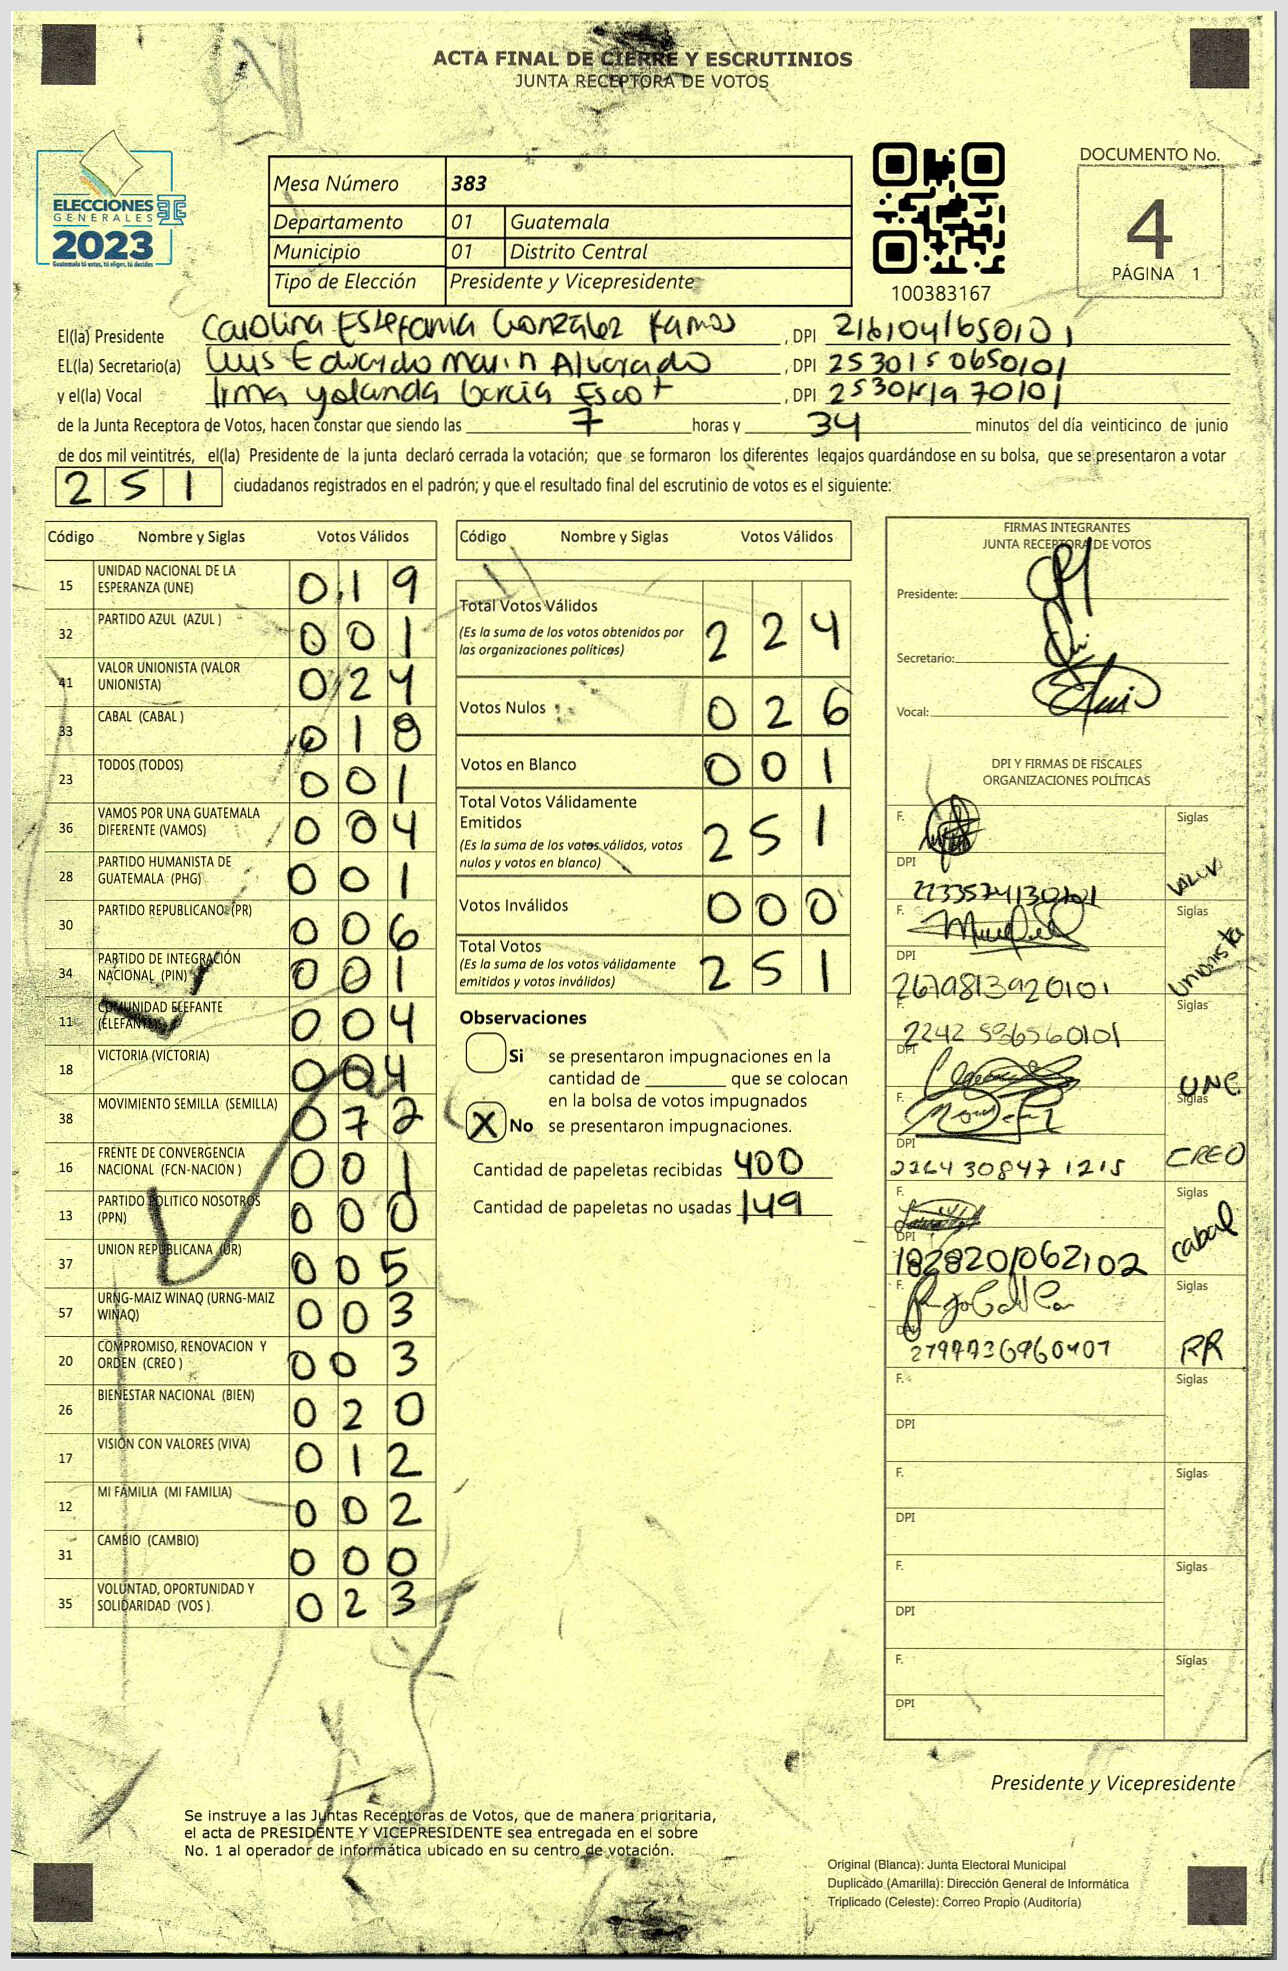 ACTA FINAL DE CIERRE Y ESCRUTINIOS
JUNTA RECEPTORA DE VOTOS
ELECCIONES
GENERALES
2023
Guatemala tú votas, tú eliges, tú decides
Mesa Número 383
Departamento 01 Guatemala
Municipio 01 Distrito Central
Tipo de Elección Presidente y Vicepresidente
100383167
DOCUMENTO No.
4
PÁGINA 1
El(la) Presidente Carolina Estefania González Ramos, DPI 2161041650101
EL(la) Secretario(a) Luis Eduardo Marin Alvarado, DPI 2530150650101
y el(la) Vocal Irma yolanda García Escot, DPI
de la Junta Receptora de Votos, hacen constar que siendo las 7 horas y 34 minutos del día veinticinco de junio
de dos mil veintitrés, el(la) Presidente de la junta declaró cerrada la votación; que se formaron los diferentes legajos guardándose en su bolsa, que se presentaron a votar
251 ciudadanos registrados en el padrón; y que el resultado final del escrutinio de votos es el siguiente:
Código Nombre y Siglas Votos Válidos
15 UNIDAD NACIONAL DE LA ESPERANZA (UNE) 019
32 PARTIDO AZUL (AZUL ) 001
41 VALOR UNIONISTA (VALOR UNIONISTA) 024
33 CABAL (CABAL ) 018
23 TODOS (TODOS) 001
36 VAMOS POR UNA GUATEMALA DIFERENTE (VAMOS) 004
28 PARTIDO HUMANISTA DE GUATEMALA (PHG) 001
30 PARTIDO REPUBLICANO (PR) 006
34 PARTIDO DE INTEGRACIÓN NACIONAL (PIN) 001
11 COMUNIDAD ELEFANTE (ELEFANTE) 004
18 VICTORIA (VICTORIA) 004
38 MOVIMIENTO SEMILLA (SEMILLA) 072
16 FRENTE DE CONVERGENCIA NACIONAL (FCN-NACION ) 001
13 PARTIDO POLITICO NOSOTROS (PPN) 000
37 UNION REPUBLICANA (UR) 005
57 URNG-MAIZ WINAQ (URNG-MAIZ WINAQ) 003
20 COMPROMISO, RENOVACION Y ORDEN (CREO ) 003
26 BIENESTAR NACIONAL (BIEN) 020
17 VISIÓN CON VALORES (VIVA) 012
12 MI FAMILIA (MI FAMILIA) 002
31 CAMBIO (CAMBIO) 000
35 VOLUNTAD, OPORTUNIDAD Y SOLIDARIDAD (VOS ) 023
Código Nombre y Siglas Votos Válidos
Total Votos Válidos 224
(Es la suma de los votos obtenidos por
las organizaciones políticas)
Votos Nulos 026
Votos en Blanco 001
Total Votos Válidamente
Emitidos 251
(Es la suma de los votos válidos, votos
nulos y votos en blanco)
Votos Inválidos 000
Total Votos 251
(Es la suma de los votos válidamente
emitidos y votos inválidos)
Observaciones
Si se presentaron impugnaciones en la
cantidad de ________ que se colocan
en la bolsa de votos impugnados
X No se presentaron impugnaciones.
Cantidad de papeletas recibidas 400
Cantidad de papeletas no usadas 149
FIRMAS INTEGRANTES
JUNTA RECEPTORA DE VOTOS
Presidente:
Secretario:
Vocal:
DPI Y FIRMAS DE FISCALES
ORGANIZACIONES POLÍTICAS
F. Siglas
DPI
F. Siglas Unionista
DPI 2679813920101
F. Siglas UNE
DPI
F. Siglas CREO
DPI 2264308471215
F. Siglas cabal
DPI 1828201062102
F. Siglas RR
DPI
F. Siglas
DPI
F. Siglas
DPI
F. Siglas
DPI
F. Siglas
DPI
Presidente y Vicepresidente
Se instruye a las Juntas Receptoras de Votos, que de manera prioritaria,
el acta de PRESIDENTE Y VICEPRESIDENTE sea entregada en el sobre
No. 1 al operador de informática ubicado en su centro de votación.
Original (Blanca): Junta Electoral Municipal
Duplicado (Amarilla): Dirección General de Informática
Triplicado (Celeste): Correo Propio (Auditoría)